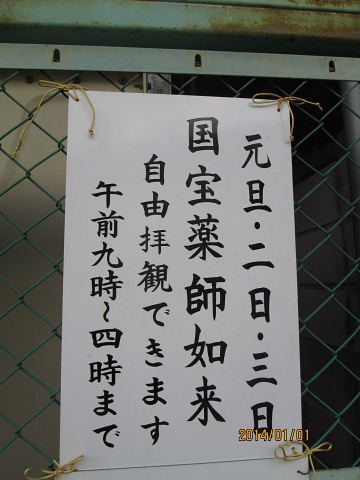 元旦・二日・三日
国宝薬師如来
自由拝観できます
午前九時~四時まで
2014/01/01